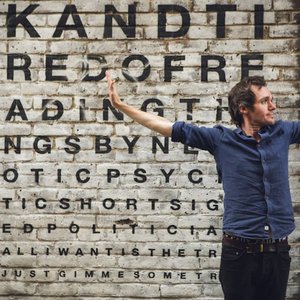 KANDTI
REDOFRE
ADINGTH
NGSBYNE
OTICPSYC
TICSHORTSIG
EDPOLITICIA
ALLIWANTISTHETR
JUSTGIMMESOMETR